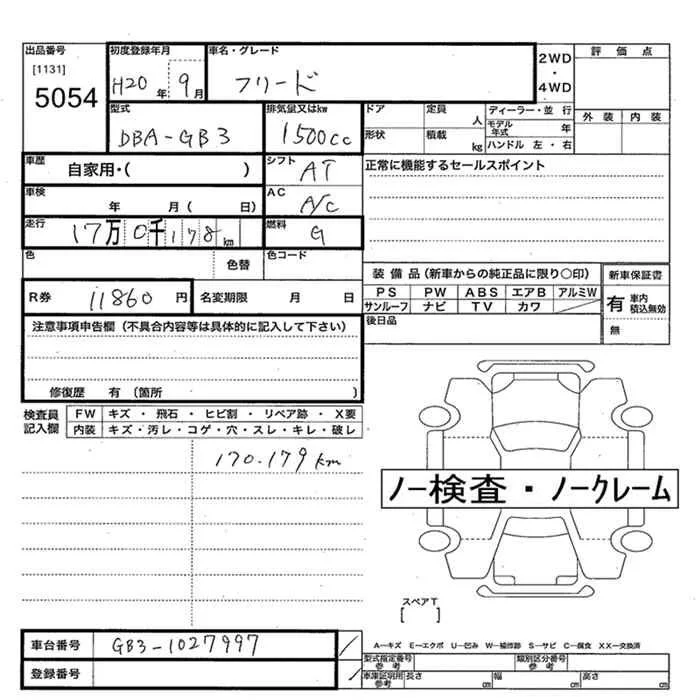 出品番号
[1131]
5054
初度登録年月
H20 年 9 月
車名・グレード
フリード
2WD
・
4WD
評価点
外装 内装
型式
DBA-GB3
排気量又はkw
1500cc
ドア
定員
人
形状
積載
kg
ディーラー・並行
モデル年式 年
ハンドル 左・右
車歴
自家用・( )
シフト
AT
正常に機能するセールスポイント
車検
年 月 ( 日)
AC
A/C
走行
17万0千178km
燃料
G
色
色替
色コード
装備品(新車からの純正品に限り○印)
PS PW ABS エアB アルミW
サンルーフ ナビ TV カワ
後日品
新車保証書
有 車内積込無効
無
R券 11860 円
名変期限 月 日
注意事項申告欄(不具合内容等は具体的に記入して下さい)
修復歴 有(箇所 )
検査員記入欄
FW キズ・飛石・ヒビ割・リペア跡・X要
内装 キズ・汚レ・コゲ・穴・スレ・キレ・破レ
170.179km
ノー検査・ノークレーム
スペアT
[ ]
車台番号 GB3-1027997
登録番号
A―キズ E―エクボ U―凹み W―補修跡 S―サビ C―腐食 XX―交換済
型式指定番号 参考
類別区分番号 参考
車庫証明用 参考
長さ cm
幅 cm
高さ cm